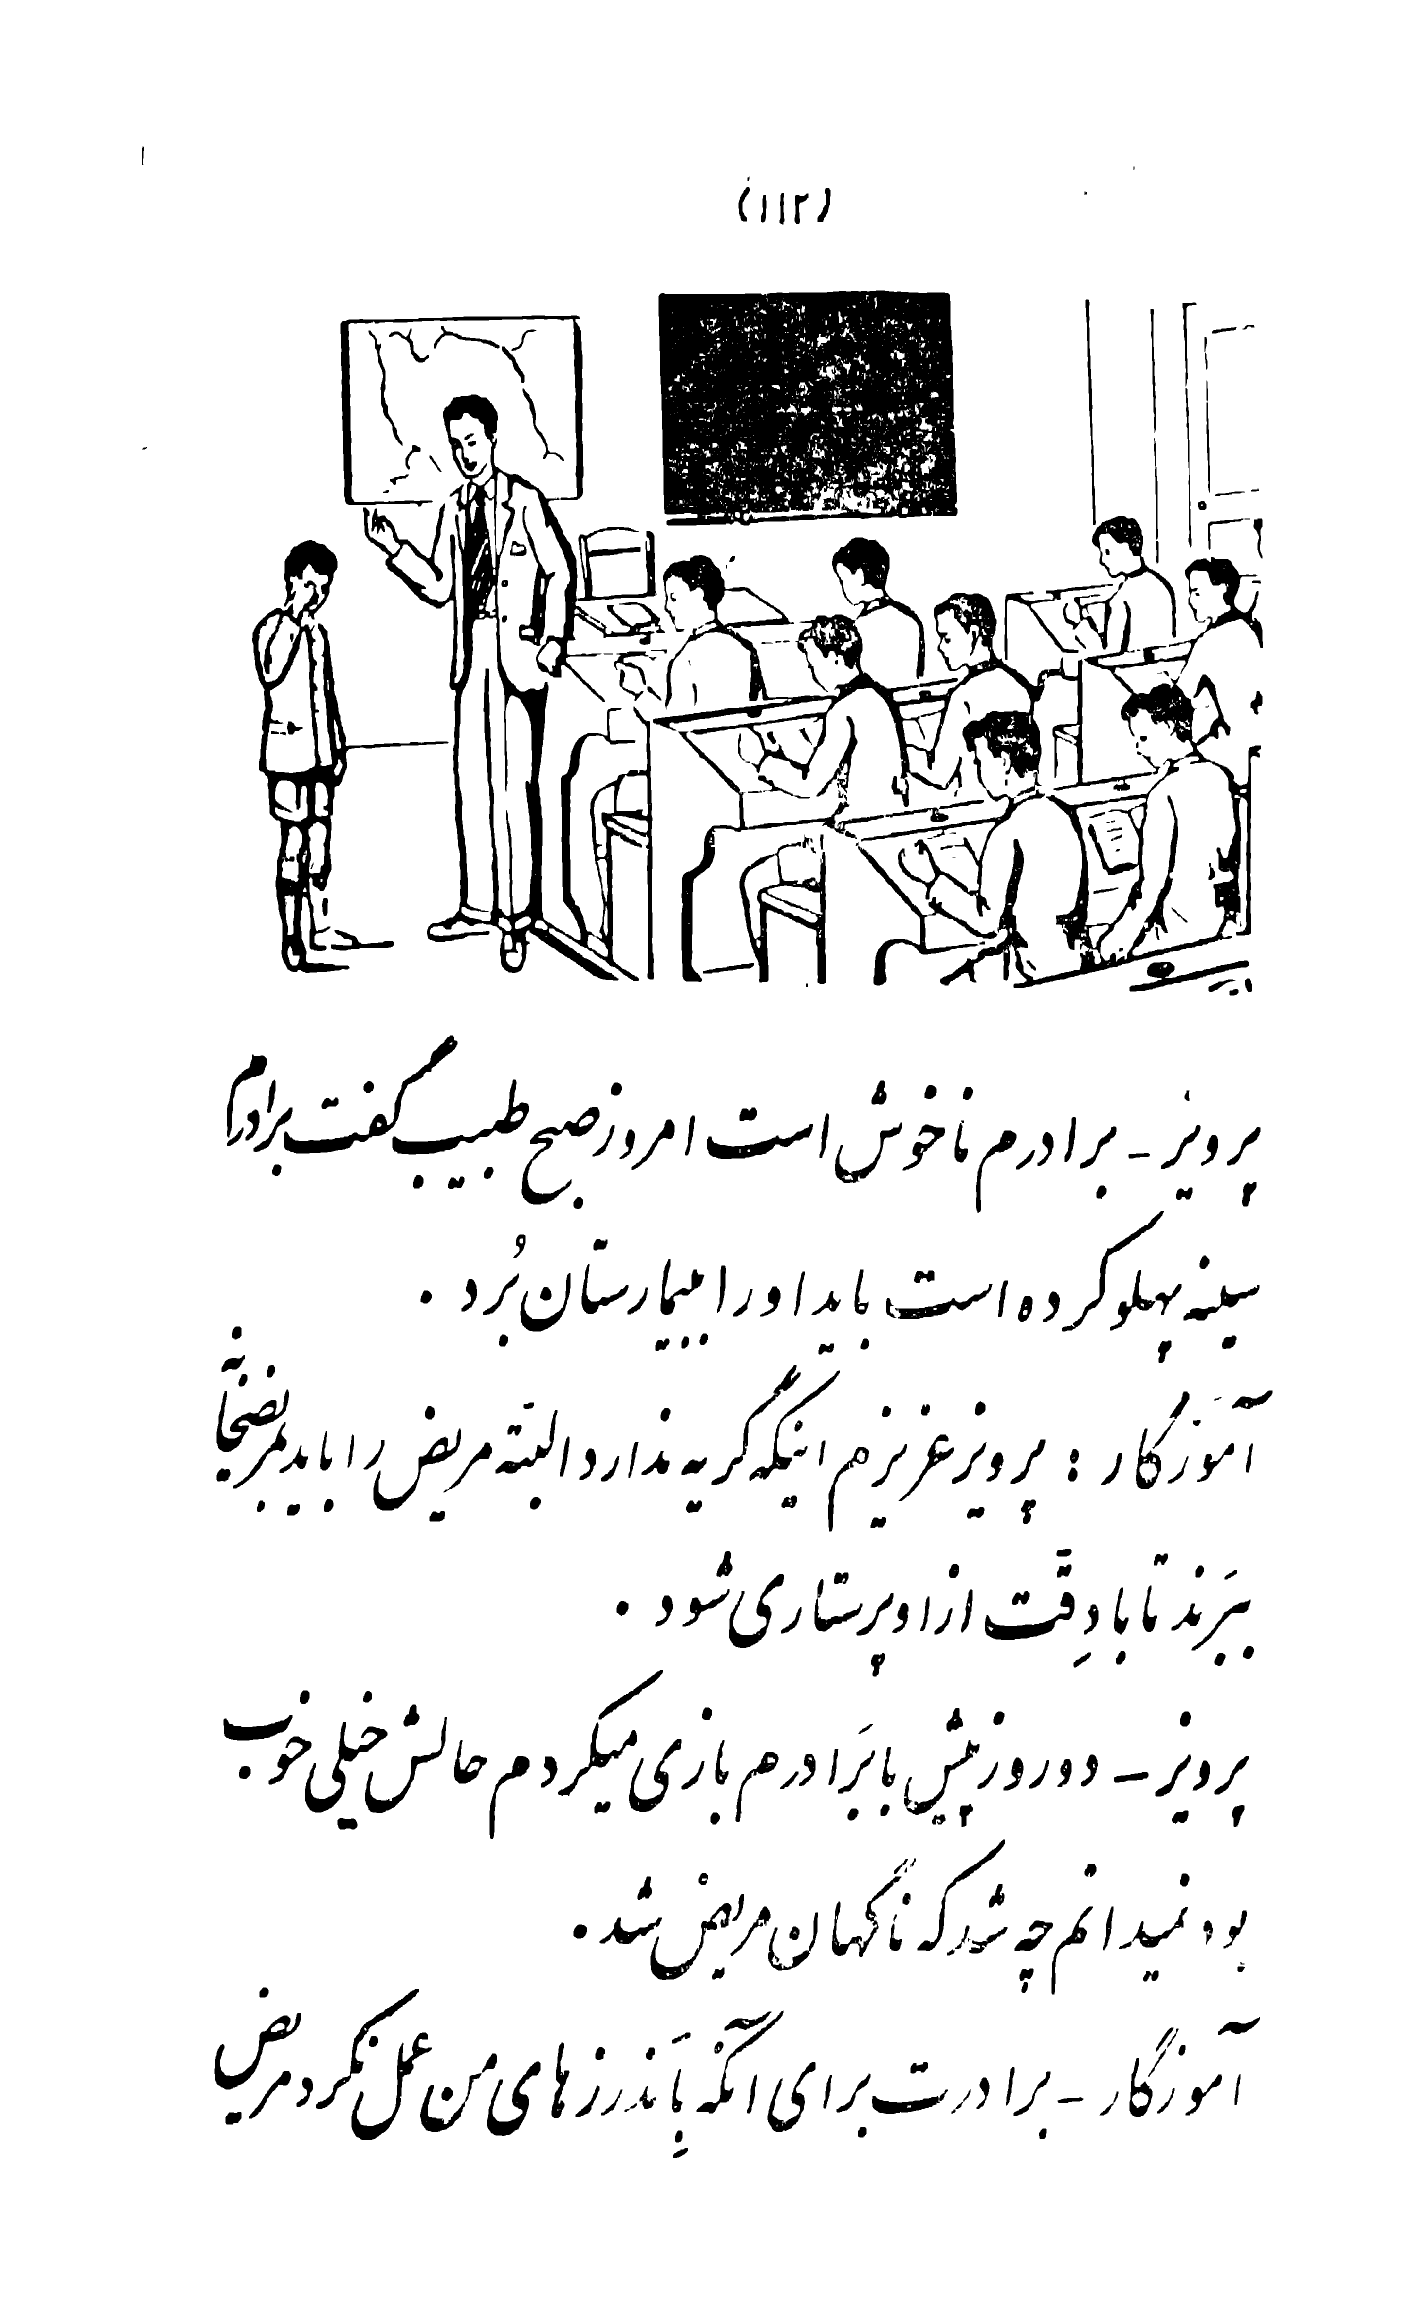 (۱۱۲)
پرویز ـ برادرم ناخوش است امروز صبح طبیب گفت برادرم
سینه پهلو کرده است باید او را ببیمارستان بُرد .
آموَزگار : پرویز عزیزم اینکه گریه ندارد البتّه مریض را باید بمریضخانه
ببَرند تا با دِقّت از او پرستاری شود .
پرویز ـ دو روز پیش با بَرادرم بازی میکردم حالش خیلی خوب
بود نمیدانم چه شد که ناگهان مریض شد .
آموزگار ـ برادرت برای آنکه بِاَندرزهای من عمل نکرد مریض